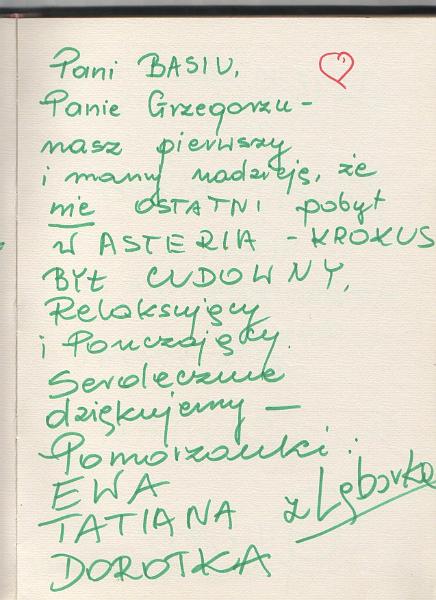 Pani BASIU,
Panie Grzegorzu -
nasz pierwszy
i mamy nadzieję, że
nie OSTATNI pobyt
W ASTERIA - KROKUS
BYŁ CUDOWNY,
Relaksujący
i Pouczający.
Serdecznie
dziękujemy —
Pomorzanki:
EWA
TATIANA z Lęborka
DOROTKA